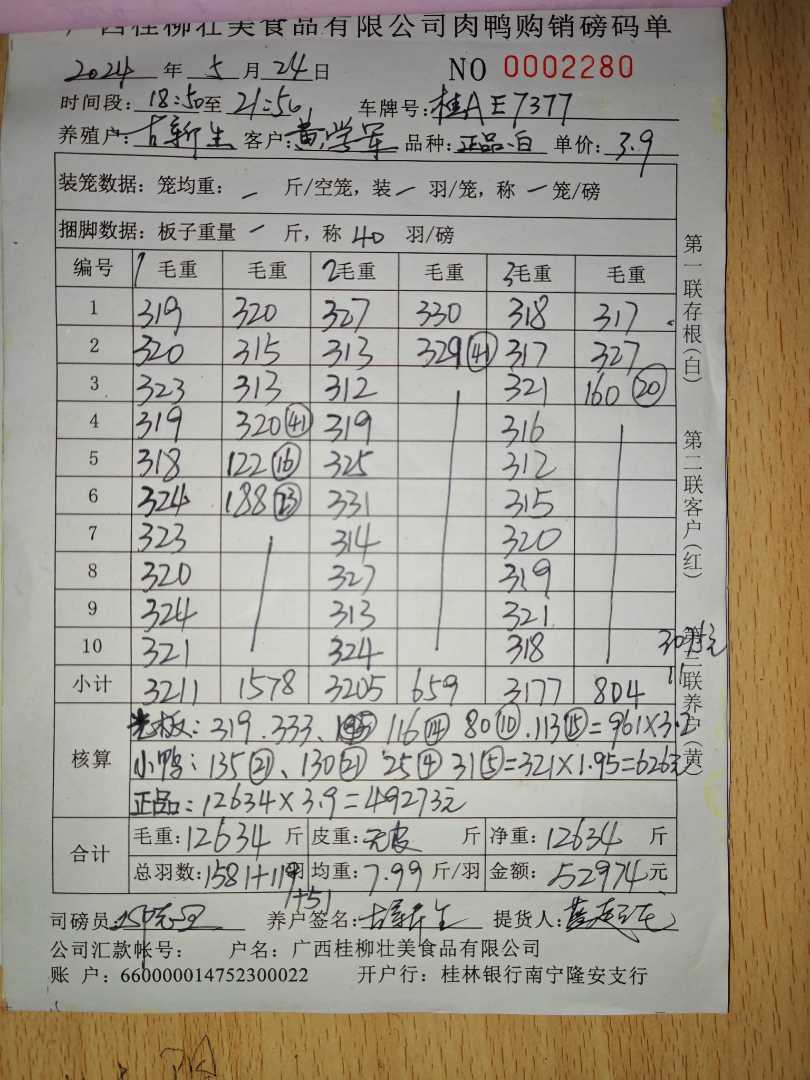 广西桂柳壮美食品有限公司肉鸭购销磅码单
2024 年 5 月 24 日 NO 0002280
时间段: 18:50 至 21:50 车牌号: 桂AE7377
养殖户: 古新生 客户: 黄学军 品种: 正品.白 单价: 3.9
装笼数据: 笼均重: 一 斤/空笼, 装 一 羽/笼, 称 一 笼/磅
捆脚数据: 板子重量 一 斤, 称 40 羽/磅
编号 1 毛重 毛重 2 毛重 毛重 3 毛重 毛重
1 319 320 327 330 318 317
2 320 315 313 329 (41) 317 327
3 323 313 312 321 160 (20)
4 319 320 (41) 319 316
5 318 122 (16) 325 312
6 324 188 (23) 331 315
7 323 314 320
8 320 327 319
9 324 313 321
10 321 324 318
小计 3211 1578 3205 659 3177 804
核算
板: 319. 333、 116 (14) 80 (10) . 113 (15) = 961 × 3.2
小鸭: 135 (21)、130 (21) 25 (4) 31 (5) = 321 × 1.95 = 626元
正品: 12634 × 3.9 = 49273元
合计
毛重: 12634 斤 皮重: 无皮 斤 净重: 12634 斤
总羽数: 1581+119 羽 均重: 7.99 斤/羽 金额: 52974 元
+51
司磅员: 养户签名: 古新生 提货人:
公司汇款帐号: 户名: 广西桂柳壮美食品有限公司
账 户: 660000014752300022 开户行: 桂林银行南宁隆安支行
第一联存根(白) 第二联客户(红) 第三联养户(黄)